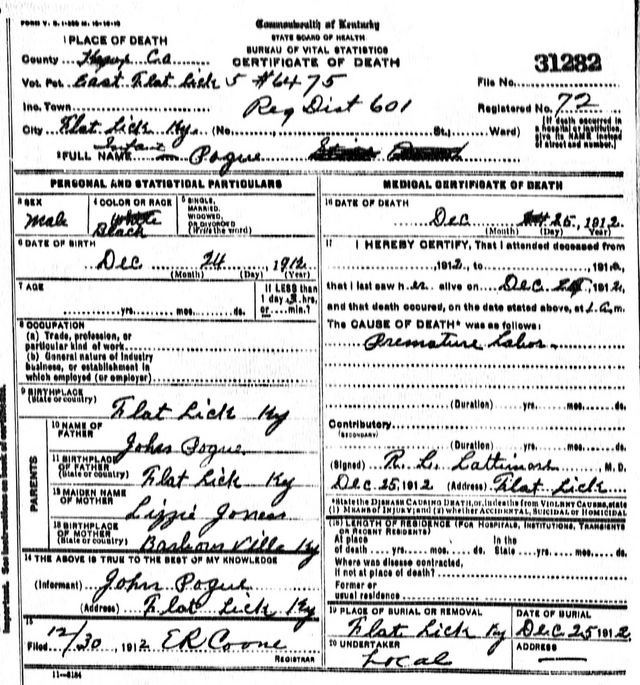 FORM V. S. 1-
Commonwealth of Kentucky
STATE BOARD OF HEALTH
BUREAU OF VITAL STATISTICS
CERTIFICATE OF DEATH
1 PLACE OF DEATH
County Co
Vot. Pct. East Flat Lick 5 #6475
File No. 31282
Inc. Town Reg Dist 601
Registered No. 72
City Flat Lick Ky. (No. St., Ward)
(If death occurred in a hospital or institution, give its NAME instead of street and number.)
2 FULL NAME Infant Pogue
PERSONAL AND STATISTICAL PARTICULARS
3 SEX Male
4 COLOR OR RACE White Black
5 SINGLE, MARRIED, WIDOWED, OR DIVORCED (Write the word)
6 DATE OF BIRTH
Dec 24 1912
(Month) (Day) (Year)
7 AGE
yrs. mos. ds.
If LESS than 1 day hrs. or min.?
8 OCCUPATION
(a) Trade, profession, or particular kind of work
(b) General nature of industry business, or establishment in which employed (or employer)
9 BIRTHPLACE
(State or country)
Flat Lick Ky
PARENTS
10 NAME OF FATHER
John Pogue
11 BIRTHPLACE OF FATHER
(State or country)
Flat Lick Ky
12 MAIDEN NAME OF MOTHER
Lizzie Jones
13 BIRTHPLACE OF MOTHER
(State or country)
Barbourville Ky
14 THE ABOVE IS TRUE TO THE BEST OF MY KNOWLEDGE
(Informant) John Pogue
(Address) Flat Lick Ky
15
Filed 12/30, 1912 E R Coone
REGISTRAR
11-8184
MEDICAL CERTIFICATE OF DEATH
16 DATE OF DEATH
Dec 25, 1912
(Month) (Day) (Year)
17 I HEREBY CERTIFY, That I attended deceased from
, 1912, to , 191
that I last saw h alive on Dec , 1912,
and that death occured, on the date stated above, at 1 a.m.
The CAUSE OF DEATH* was as follows:
Premature Labor
(Duration) yrs. mos. ds.
Contributory
(SECONDARY)
(Duration) yrs. mos. ds.
(Signed) R. L. M. D.
Dec 25, 1912 (Address) Flat Lick
*State the DISEASE CAUSING DEATH, or, in deaths from VIOLENT CAUSES, state (1) MEANS OF INJURY; and (2) whether ACCIDENTAL, SUICIDAL OR HOMICIDAL
18 LENGTH OF RESIDENCE (FOR HOSPITALS, INSTITUTIONS, TRANSIENTS OR RECENT RESIDENTS)
At place of death yrs. mos. ds. In the State yrs. mos. ds.
Where was disease contracted, if not at place of death?
Former or usual residence
19 PLACE OF BURIAL OR REMOVAL
Flat Lick Ky
DATE OF BURIAL
Dec 25 1912
20 UNDERTAKER
Local
ADDRESS
Important. See instructions on back of certificate.